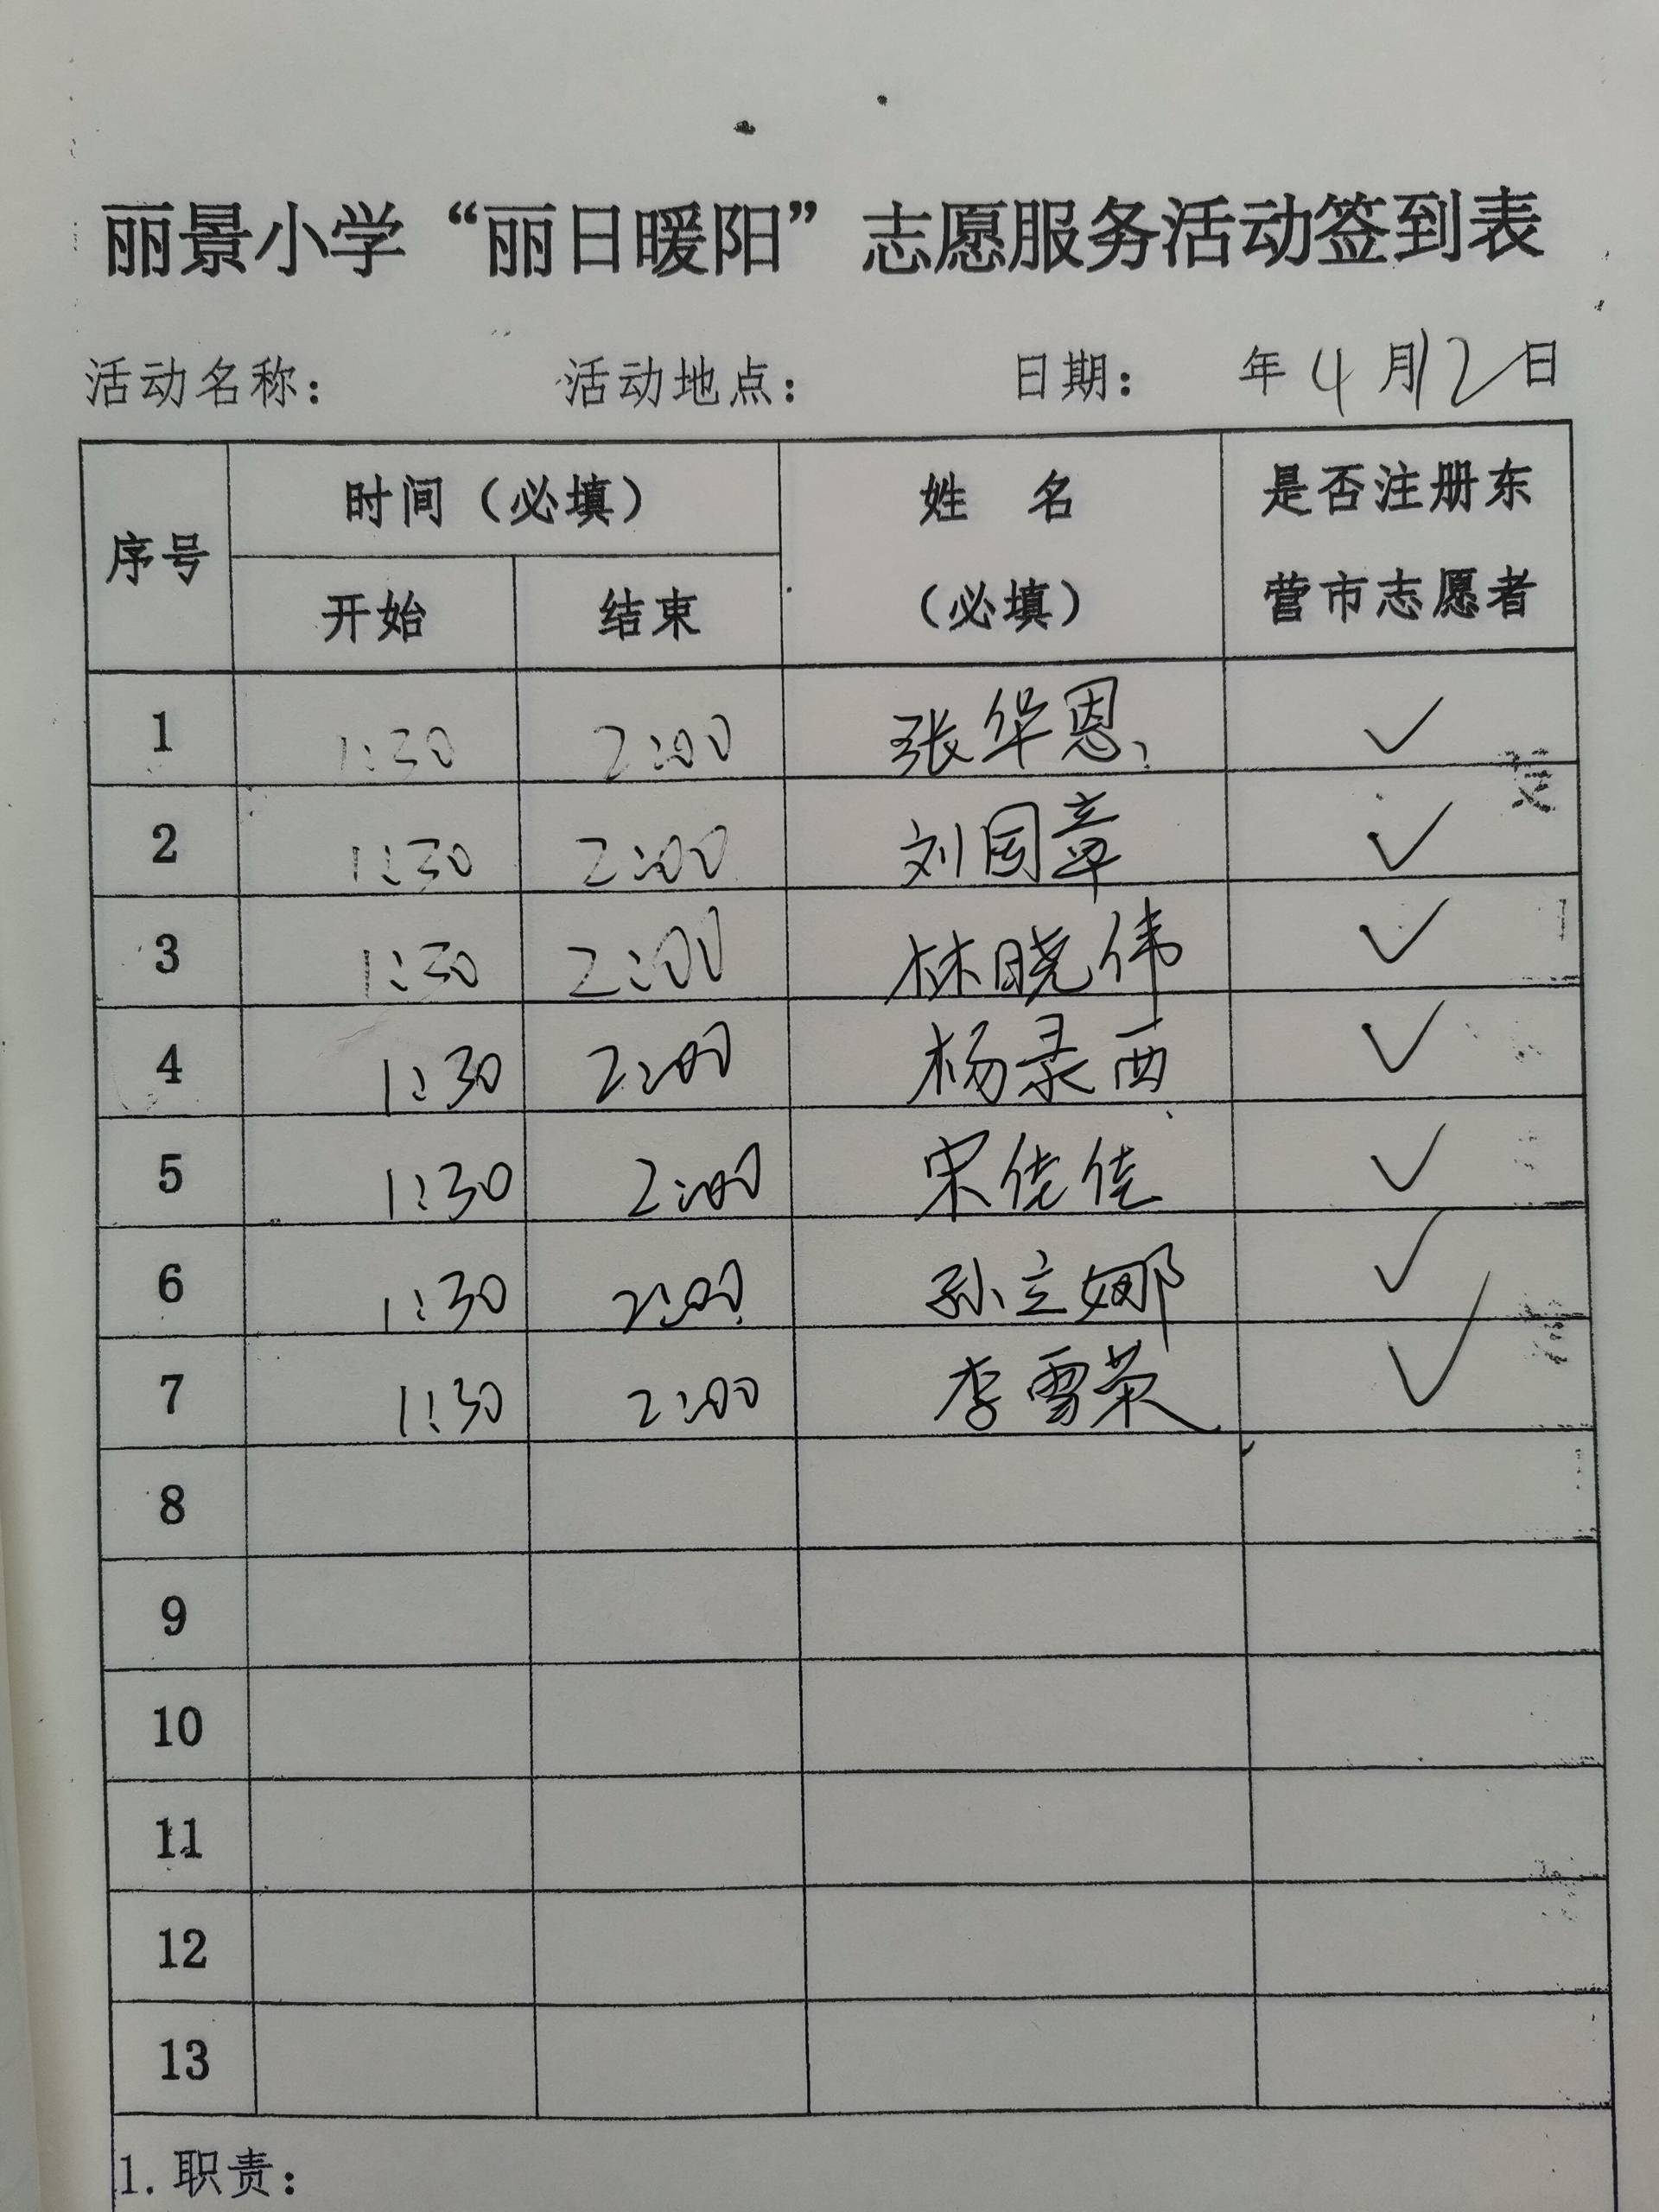 丽景小学“丽日暖阳”志愿服务活动签到表
活动名称： 活动地点： 日期： 年4月12日
序号 时间（必填） 姓 名（必填） 是否注册东营市志愿者
开始 结束
1 1:30 2:00 张华恩 ✓
2 1:30 2:00 刘国章 ✓
3 1:30 2:00 林晓伟 ✓
4 1:30 2:00 杨录西 ✓
5 1:30 2:00 宋佳佳 ✓
6 1:30 2:00 孙立娜 ✓
7 1:30 2:00 李雪荣 ✓
8
9
10
11
12
13
1.职责：